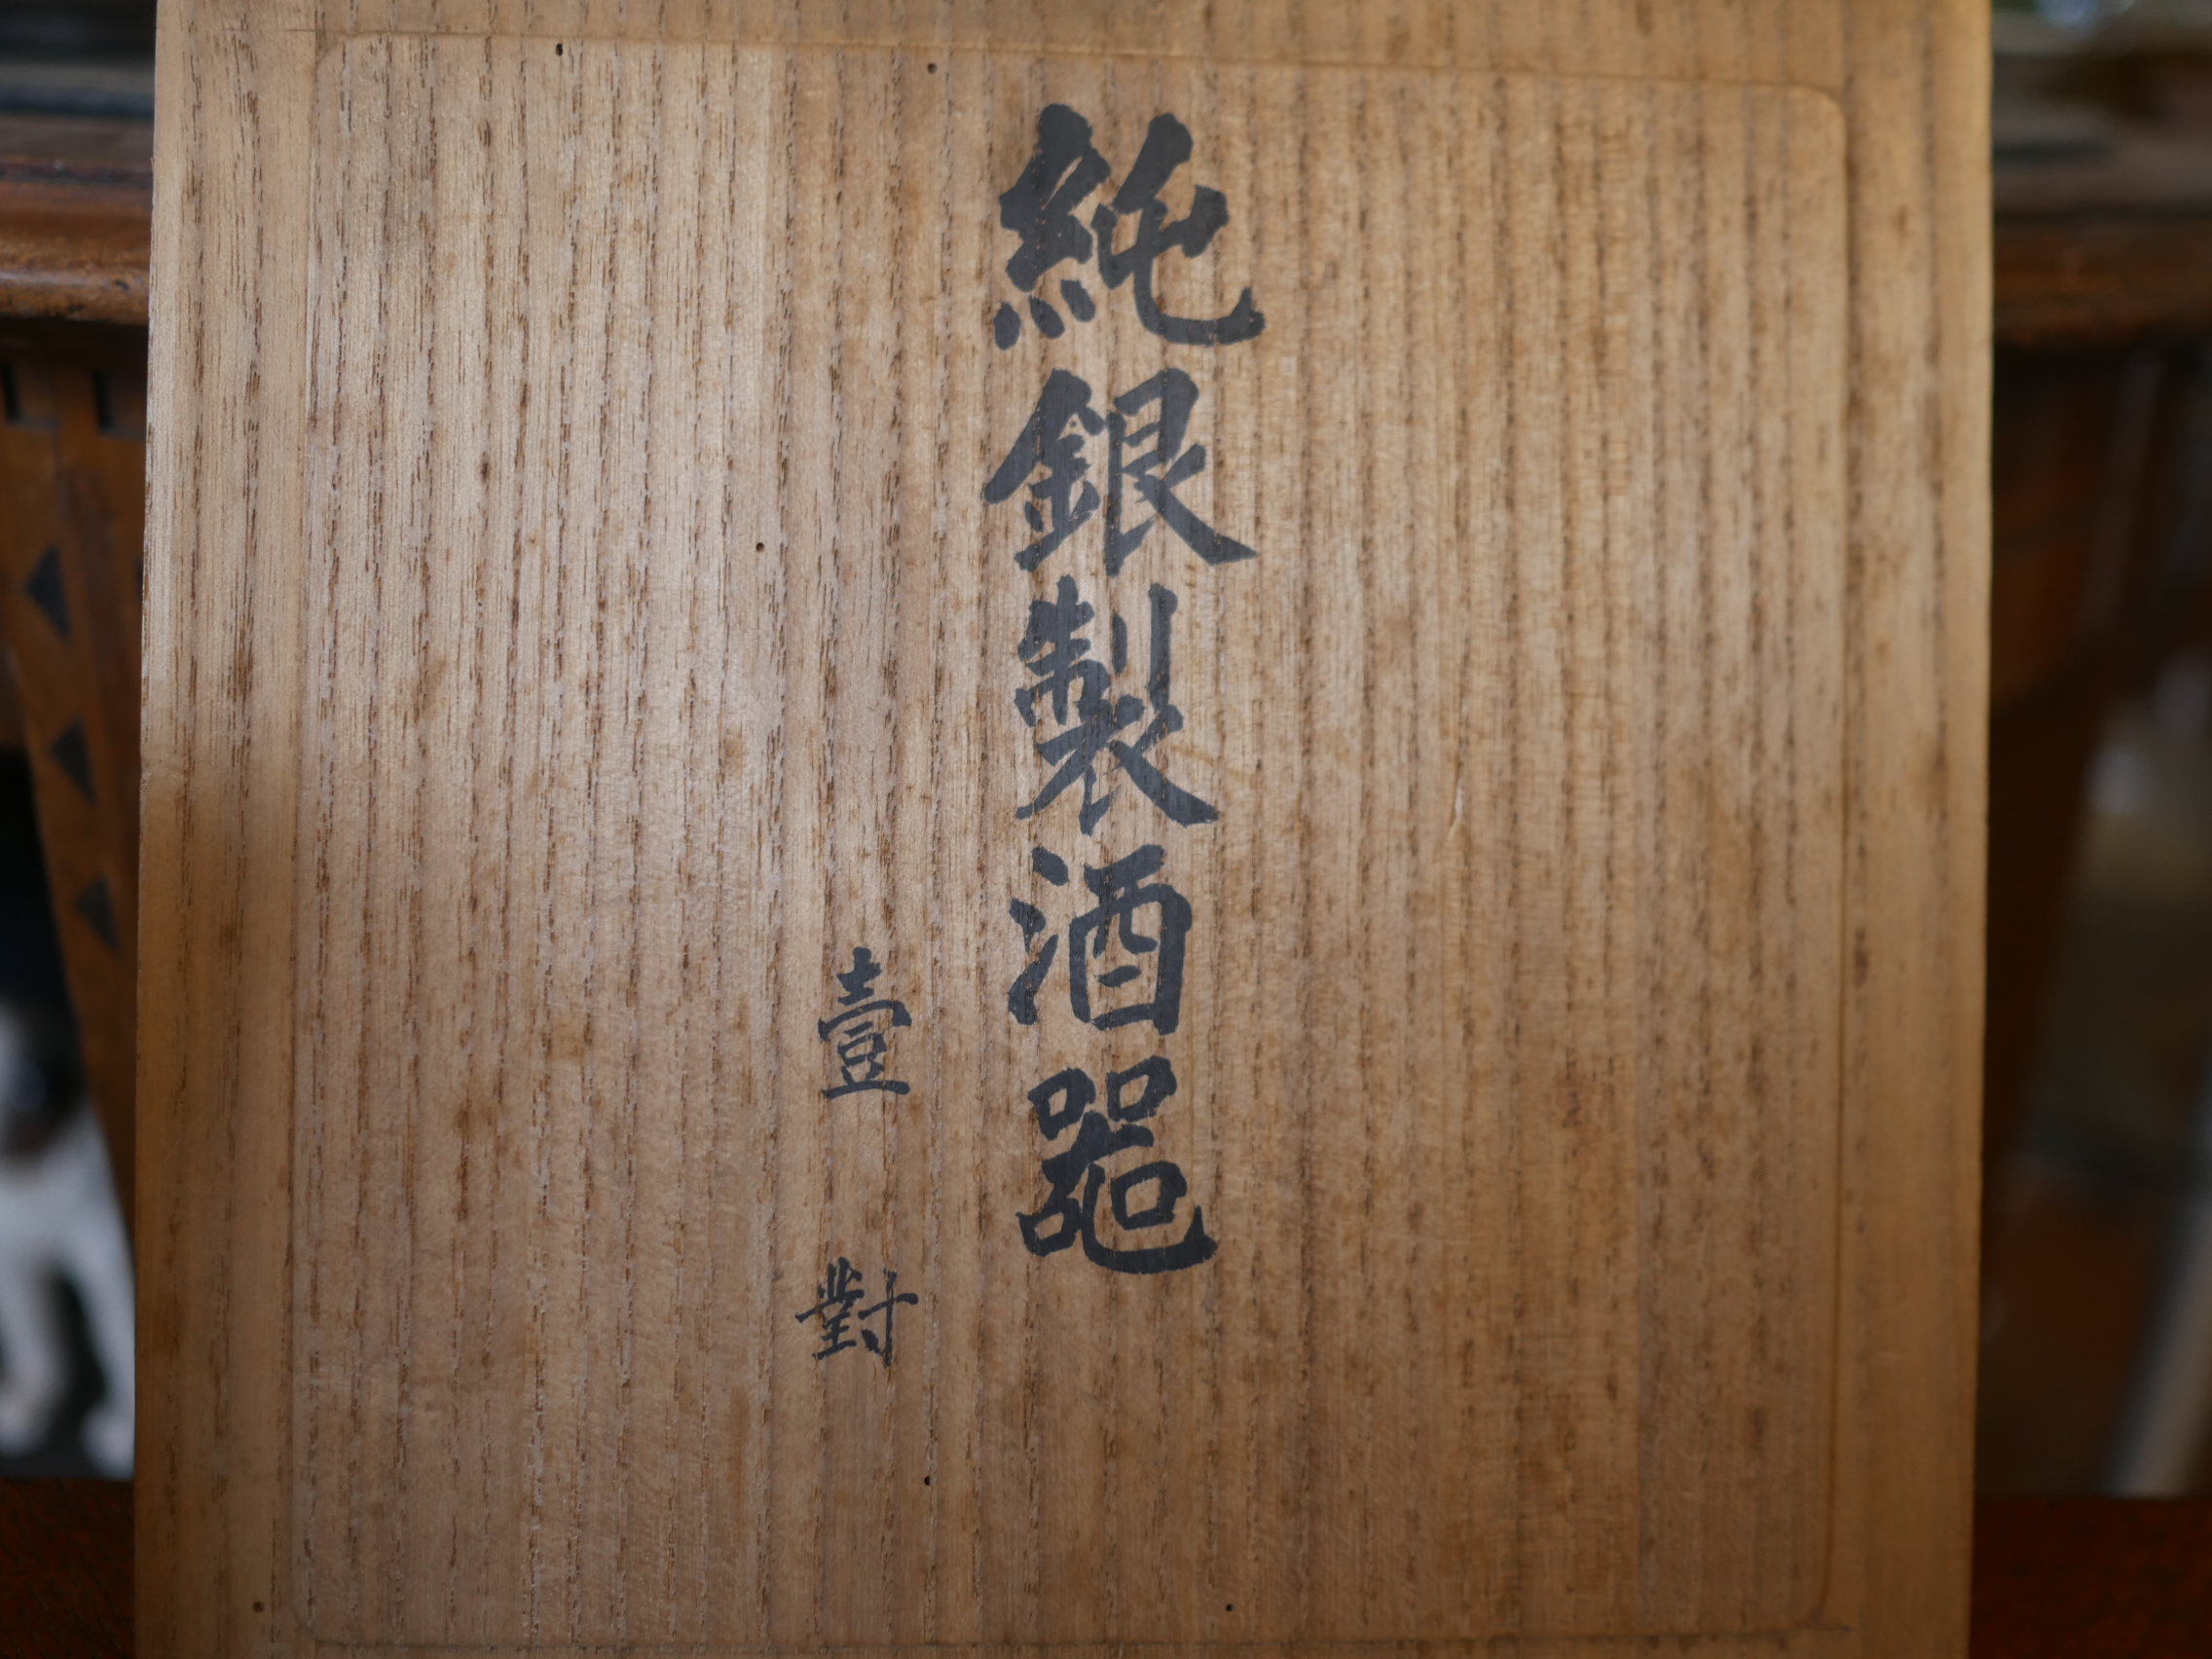 純銀製酒噐
壹對